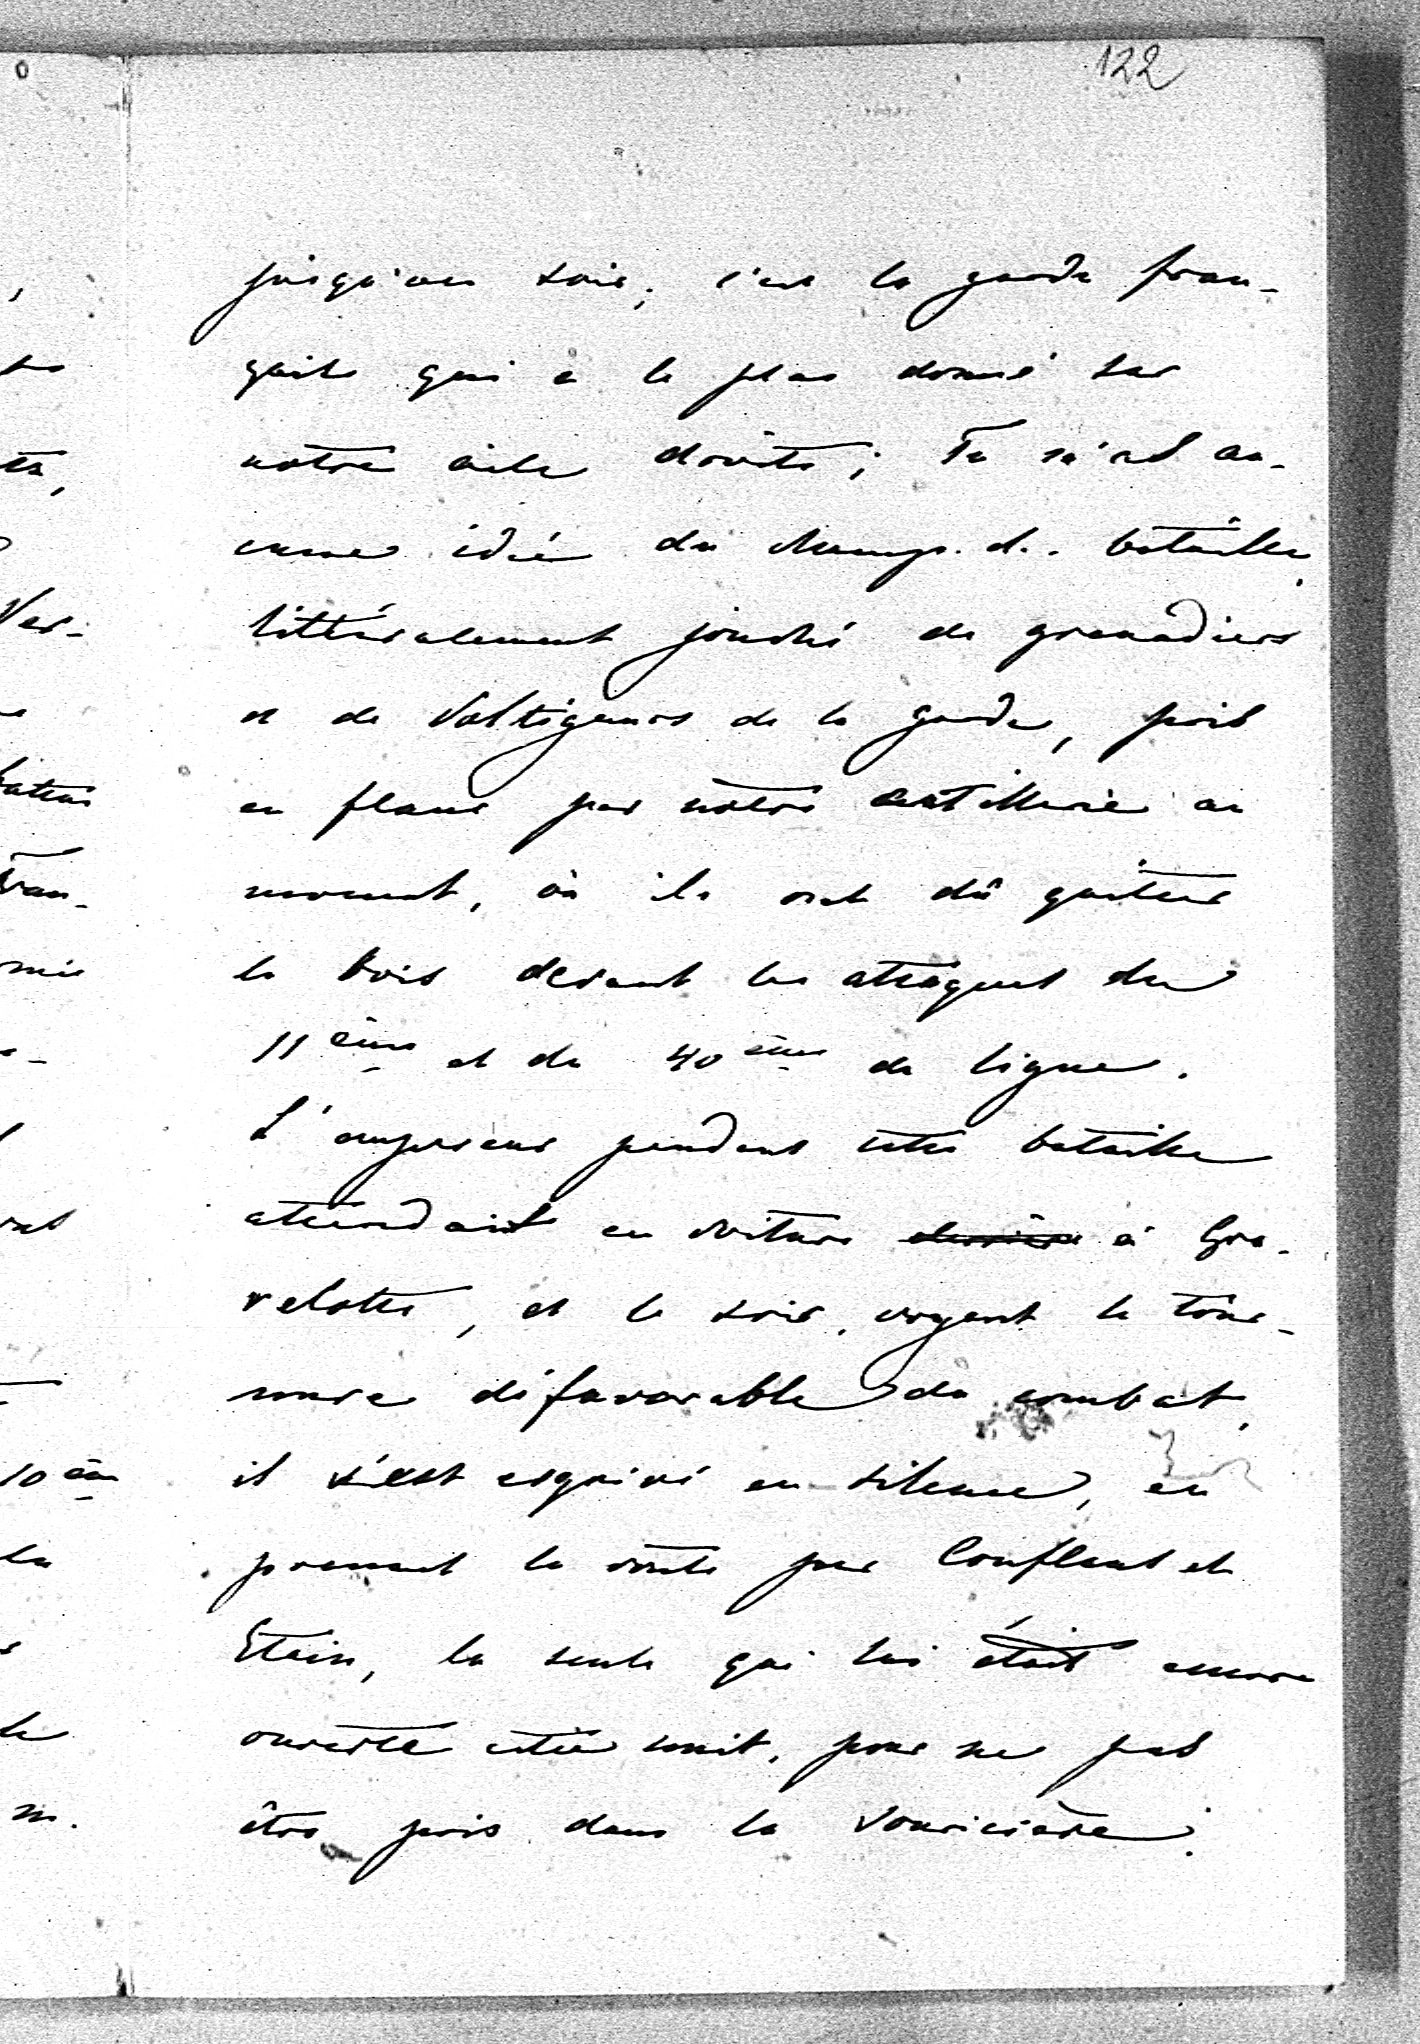 122
jusqu'au soir; c'est la garde fran-
çaise qui a le plus donné sur
notre aile droite; Tu n'as au-
cune idée du champ de bataille,
littéralement jonché de grenadiers
et de Voltigeurs de la garde, pris
en flanc par notre artillerie au
moment, où ils ont dû quitter
le bois devant les attaques du
11ème et du 40ème de ligne.
L'empereur pendant cette bataille
attendait en voiture derrière à Gra-
velotte, et le soir, voyant la tour-
nure défavorable du combat,
il s'est esquivé en silence, en
prenant la route par Conflans et
Etain, la seule qui lui était encore
ouverte cette nuit, pour ne pas
être pris dans la souricière.
Ver-
10ème
la
m.